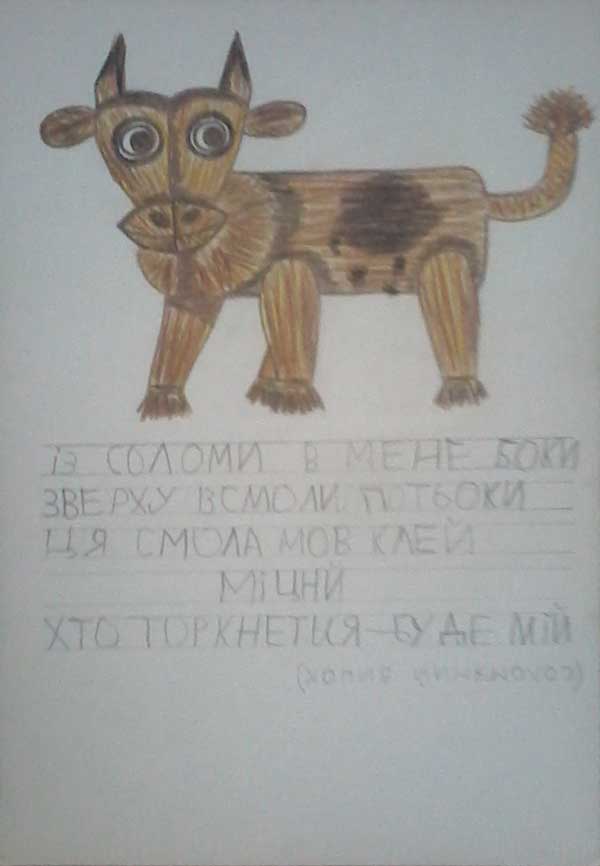 ІЗ СОЛОМИ В МЕНЕ БОКИ
ЗВЕРХУ ІЗ СМОЛИ ПОТЬОКИ
ЦЯ СМОЛА МОВ КЛЕЙ
МІЦНЙ
ХТО ТОРКНЕТЬСЯ-БУДЕ МІЙ
(СОЛОМ'ЯНИЙ БИЧОК)